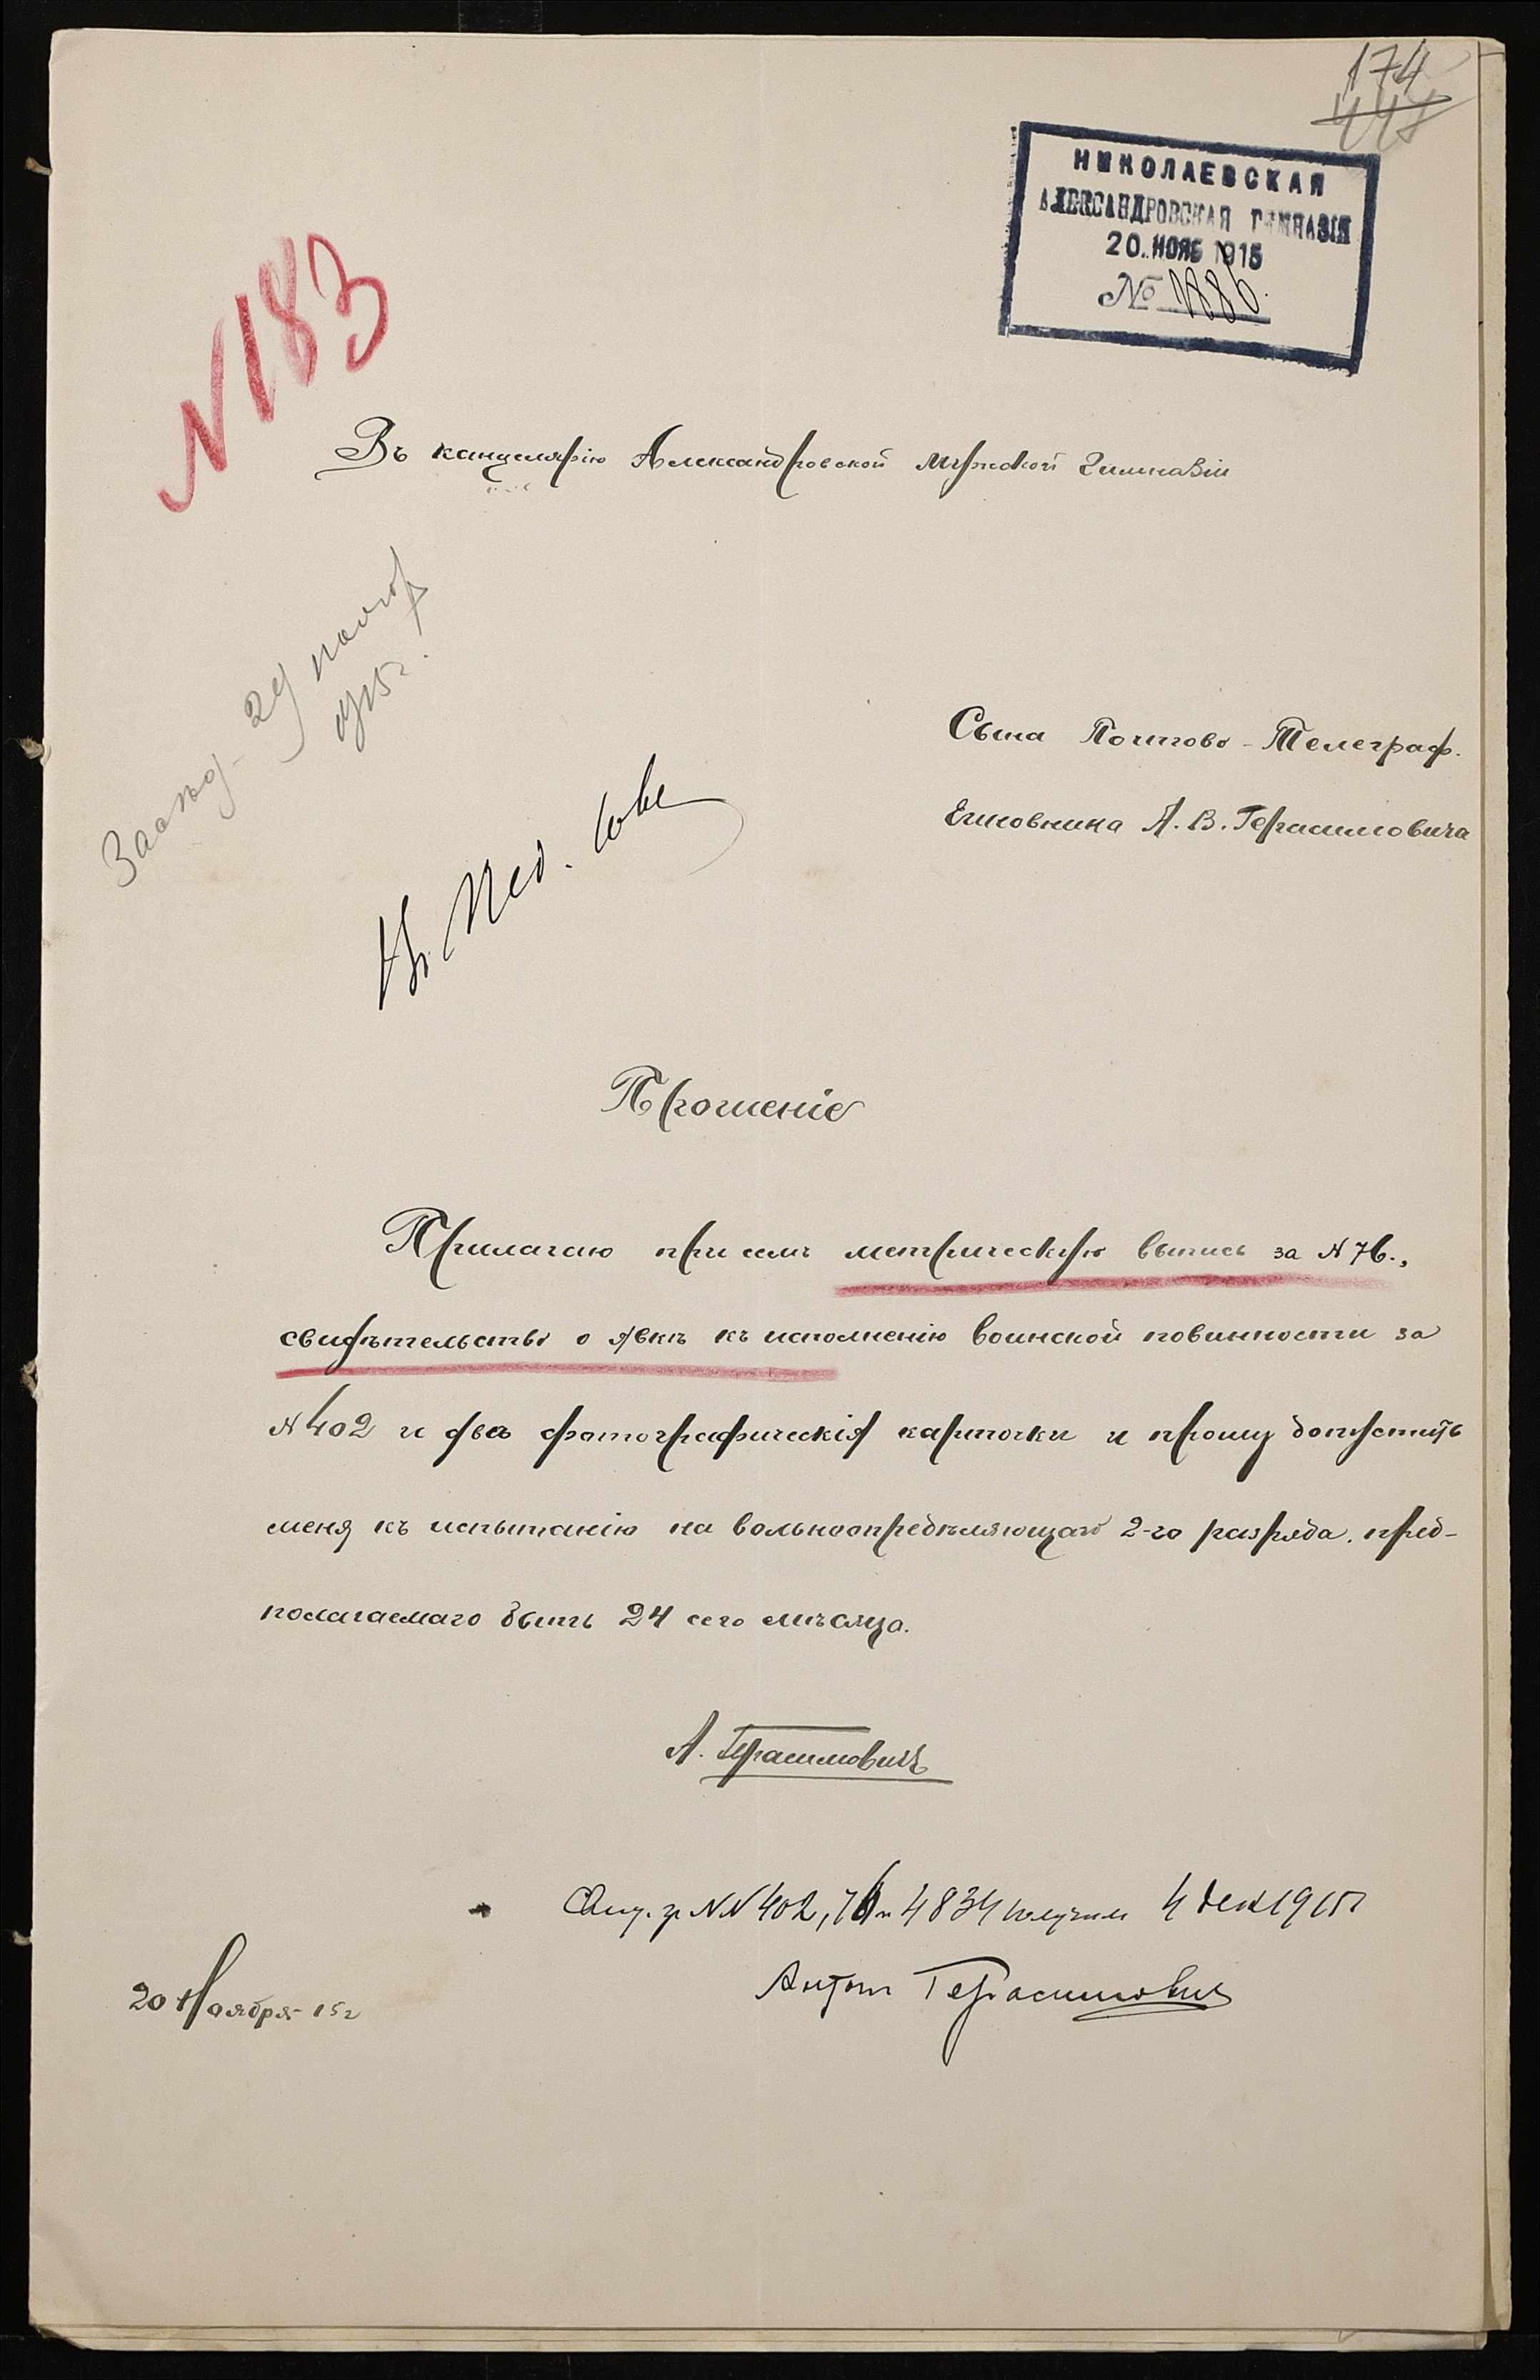 174
448
НИКОЛАЕВСКАЯ
АЛЕКСАНДРОВСКАЯ ГИМНАЗІЯ
20. НОЯБ 1915
№ 1886.
N 183
Въ канцелярію Александровской мужской гимназіи
Засѣд. 29 ноябр
1915 г.
Сына Почтово-Телеграф.
Чиновника А. В. Герасимовича
Въ Пед. Сове
Прошеніе
Прилагаю при семъ метрическую выпись за N 76.,
свидѣтельство о явкѣ къ исполненію воинской повинности за
N 402 и двѣ фотографическія карточки и прошу допустить
меня къ испытанію на вольноопредѣляющаго 2-го разряда, пред-
полагаемаго быть 24 сего мѣсяца.
А. Герасимовичъ
NN 402, 76 и 4834 получилъ 4 дек 1915 г
Антонъ Герасимовичъ
20 Ноября 15 г